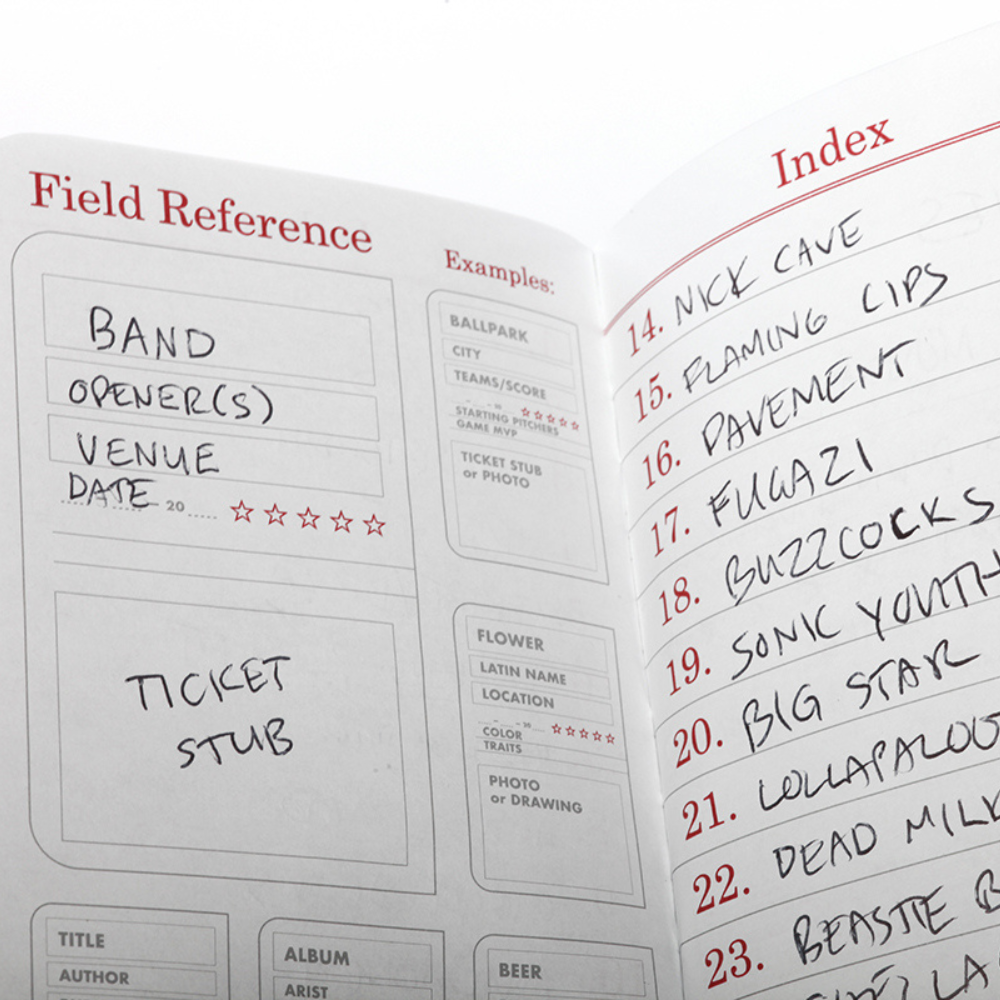 Field Reference
BAND
OPENER(S)
VENUE
DATE 20
TICKET
STUB
Examples:
BALLPARK
CITY
TEAMS/SCORE
20
STARTING PITCHERS
GAME MVP
TICKET STUB
or PHOTO
FLOWER
LATIN NAME
LOCATION
20
COLOR
TRAITS
PHOTO
or DRAWING
TITLE
AUTHOR
ALBUM
ARIST
BEER
Index
14. NICK CAVE
15. FLAMING LIPS
16. PAVEMENT
17. FUGAZI
18. BUZZCOCKS
19. SONIC YOUTH
20. BIG STAR
21. LOLLAPALOO
22. DEAD MILK
23. BEASTIE B